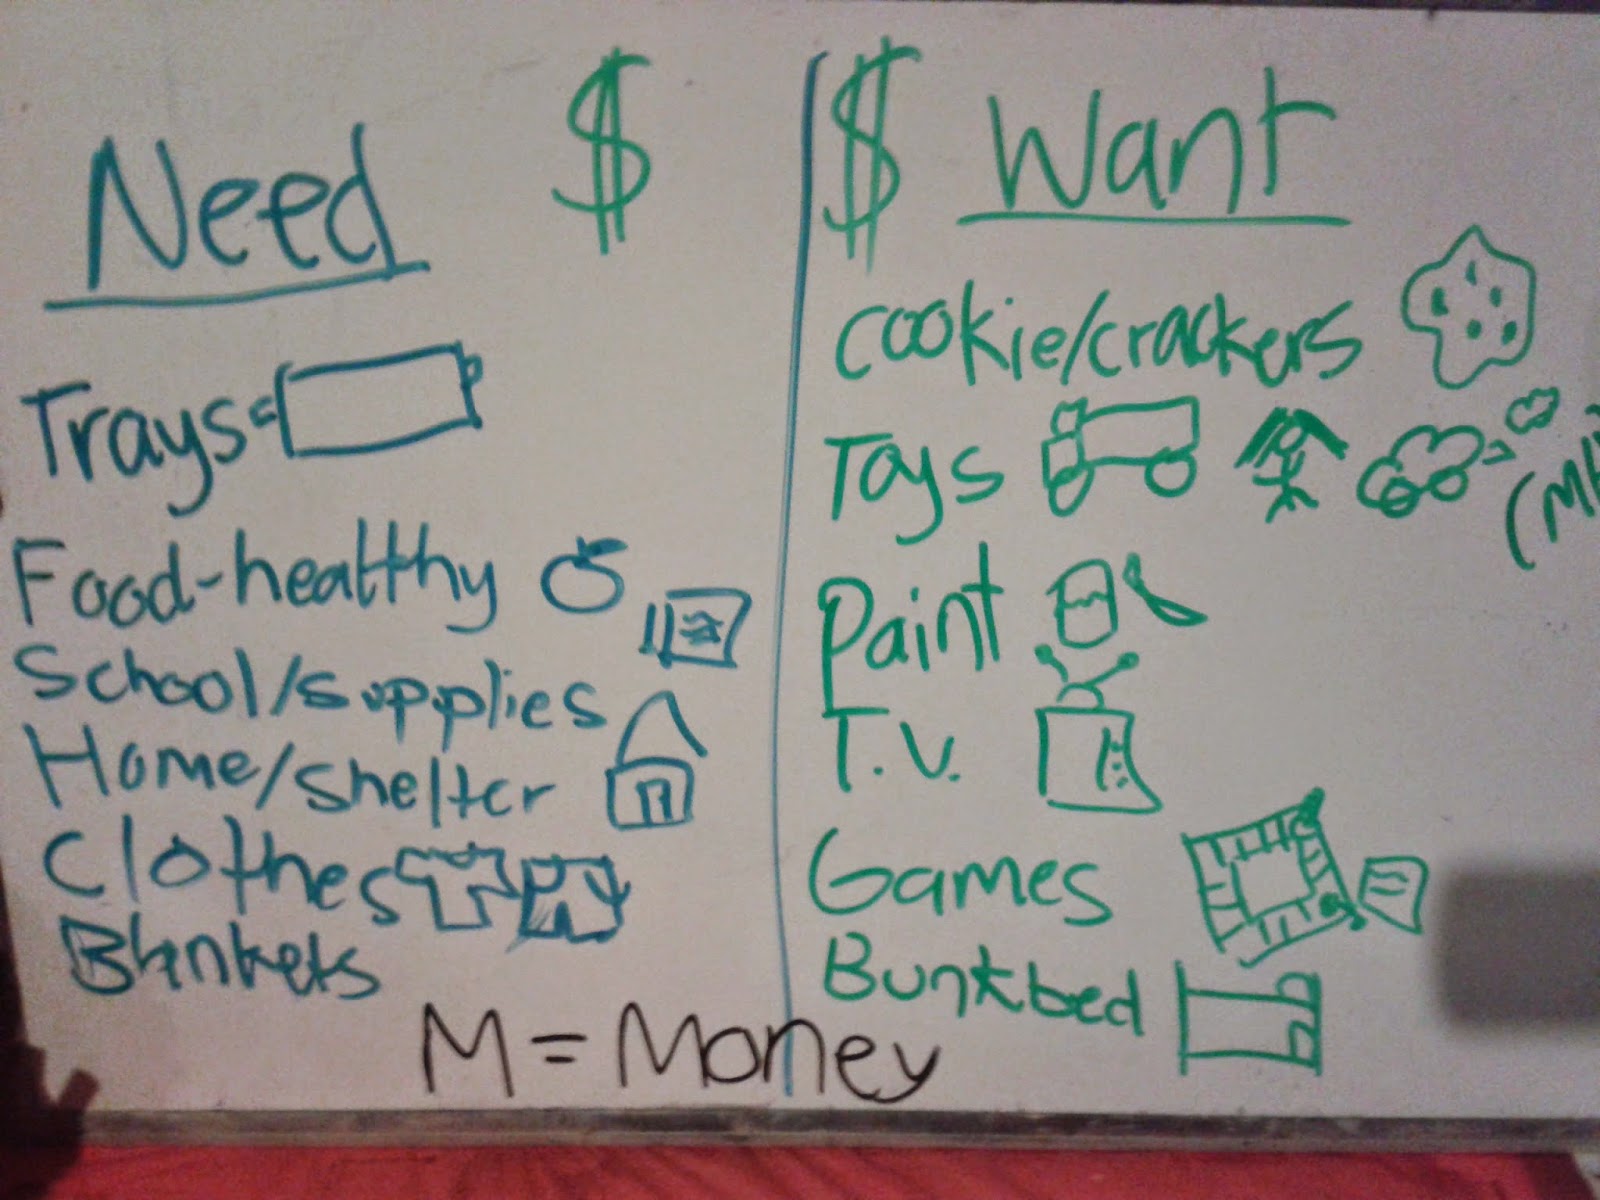 Need $
Trays=
Food-healthy
School/supplies
Home/shelter
Clothes
Blankets
$ Want
cookie/crackers
Toys
Paint
T.V.
Games
Bunkbed
M = Money